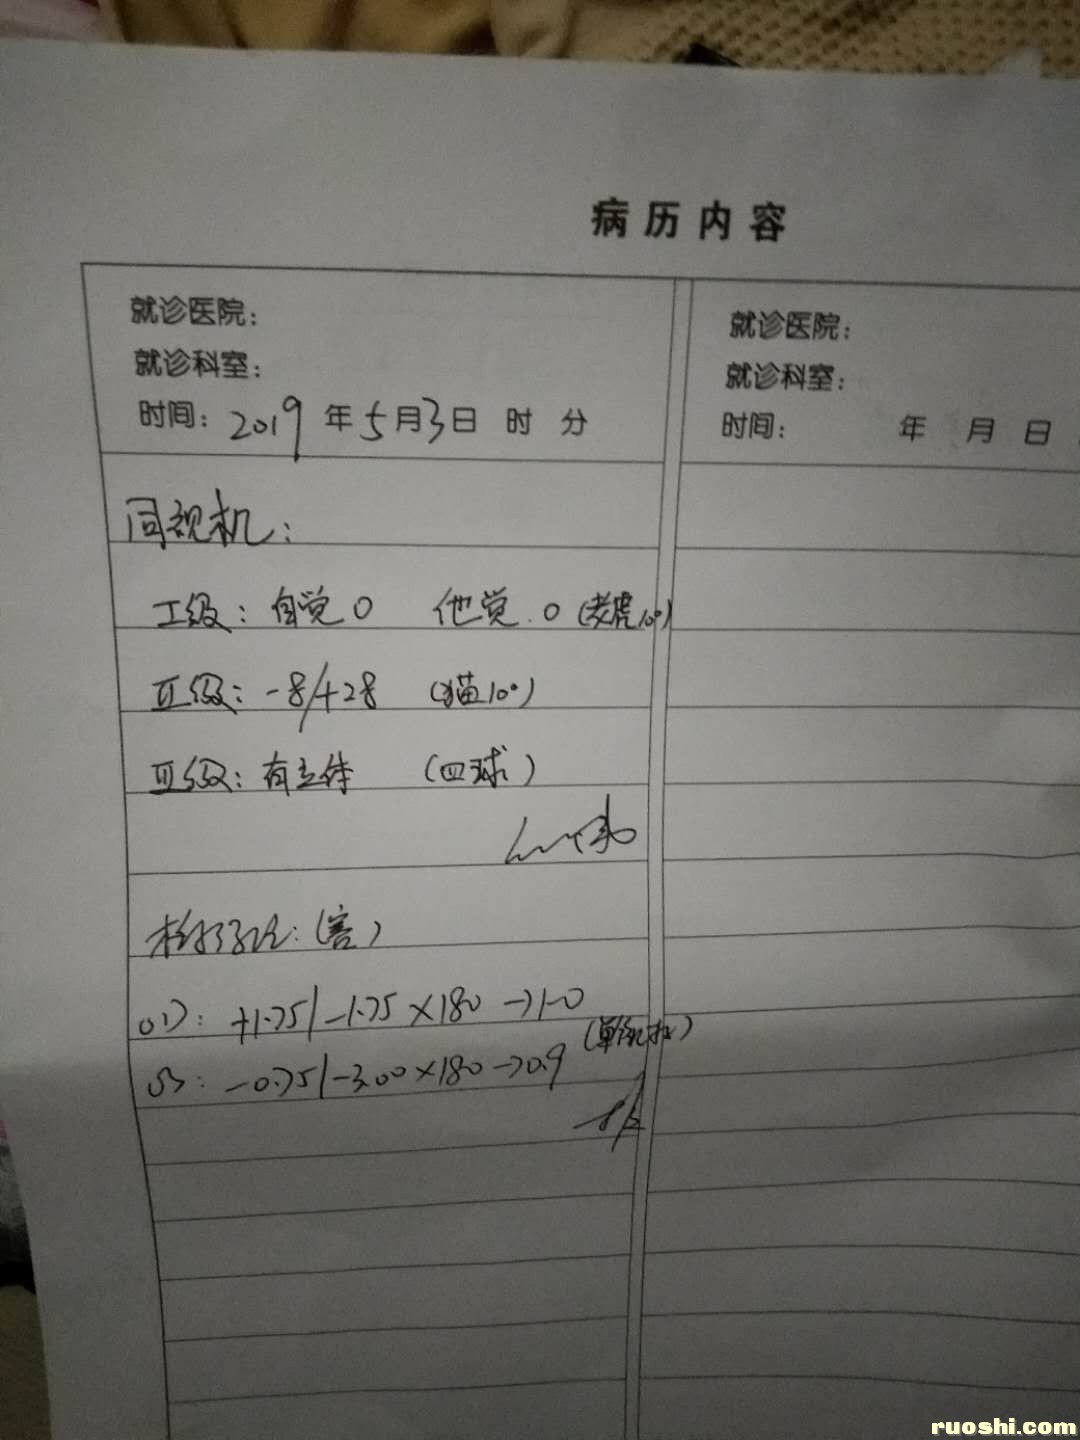 病历内容
就诊医院：
就诊科室：
时间：2019年5月3日 时 分
同视机：
I级：自觉0 他觉.0(老虎10°)
II级：-8/+28 (猫10°)
III级：有立体 (四球)
OD：+1.75/-1.75×180→1.0
OS：-0.75/-3.00×180→0.9
就诊医院：
就诊科室：
时间： 年 月 日
ruoshi.com